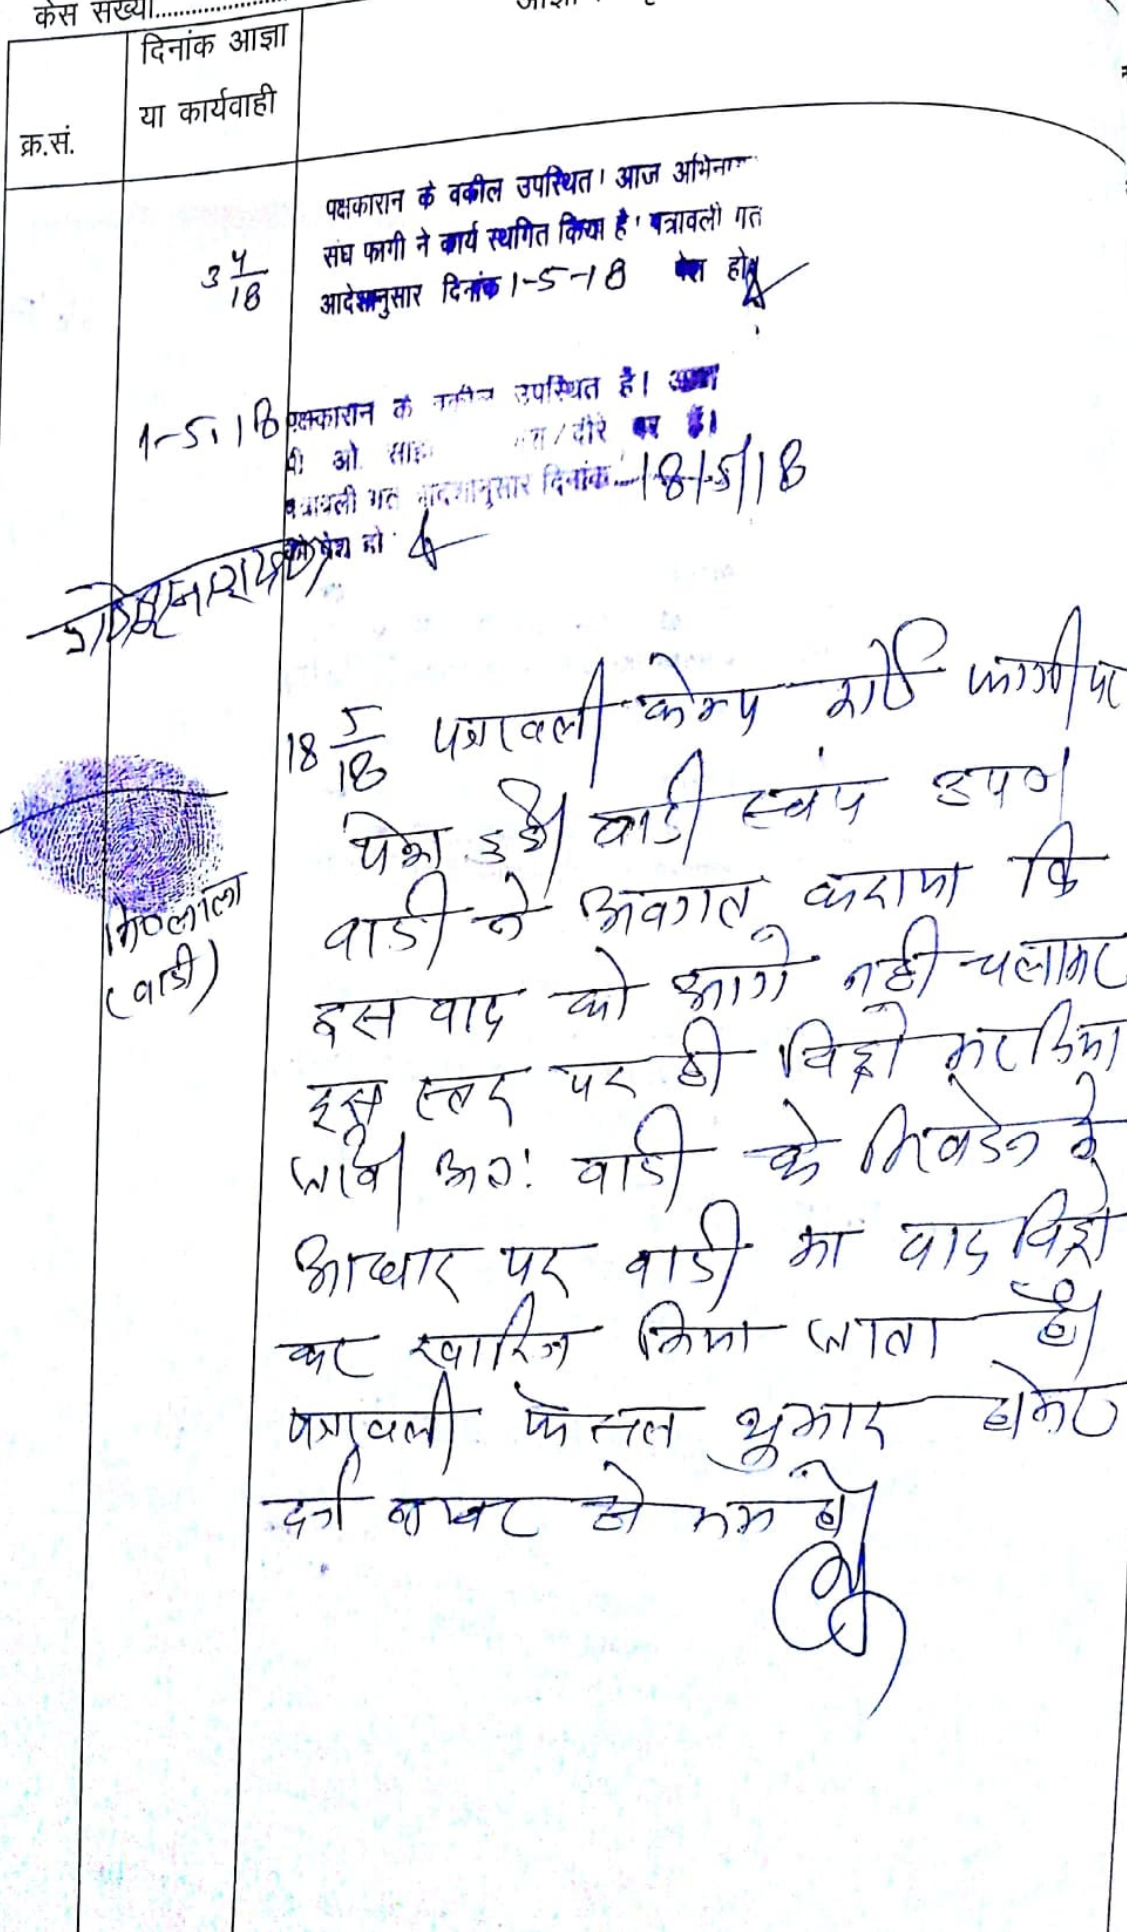 केस संख्या
दिनांक आज्ञा
या कार्यवाही
क्र.सं.
पक्षकारान के वकील उपस्थित। आज
संघ फागी ने कार्य स्थगित किया है। पत्रावली गत
3 4/18
आदेशानुसार दिनांक 1-5-18 पेश हो
1-5-18 पक्षकारान के वकील उपस्थित है। आज
पी ओ. दौरे पर है।
पत्रावली गत आदेशानुसार दिनांक 18/5/18
को पेश हो
18 5/18 पत्रावली केम्प कोर्ट फागी पर
पेश हुई। वादी स्वंय उप०।
वादी ने अवगत कराया कि
(वादी)
इस वाद को आगे नही चलाकर
इस स्तर पर ही विड्रो कर लिया
जावे। अतः वादी के निवेदन के
आधार पर वादी का वाद विड्रो
कर खारिज किया जाता है।
पत्रावली फैसल शुमार होकर
दर्ज